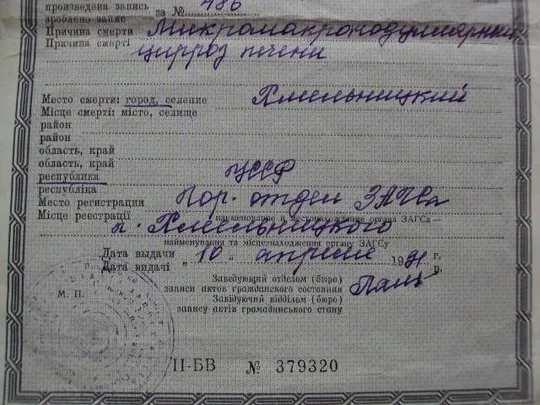 произведена запись
зроблено запис за № 486
Причина смерти Микромакронодулярный
Причина смерті цирроз печени
Место смерти: город, селение Хмельницкий
Місце смерті: місто, селище
район
район
область, край
область, край
республика УССР
республіка
Место регистрации Гор. отдел ЗАГСа
Місце реєстрації наименование и местонахождение органа ЗАГСа
г. Хмельницкого
найменування та місцезнаходження органу ЗАГСу
Дата выдачи „ 10 „ апреля 1991 г.
Дата видачі р.
Заведующий отделом (бюро)
М. П. записи актов гражданского состояния
Завідуючий відділом (бюро)
запису актів громадянського стану
II-БВ № 379320